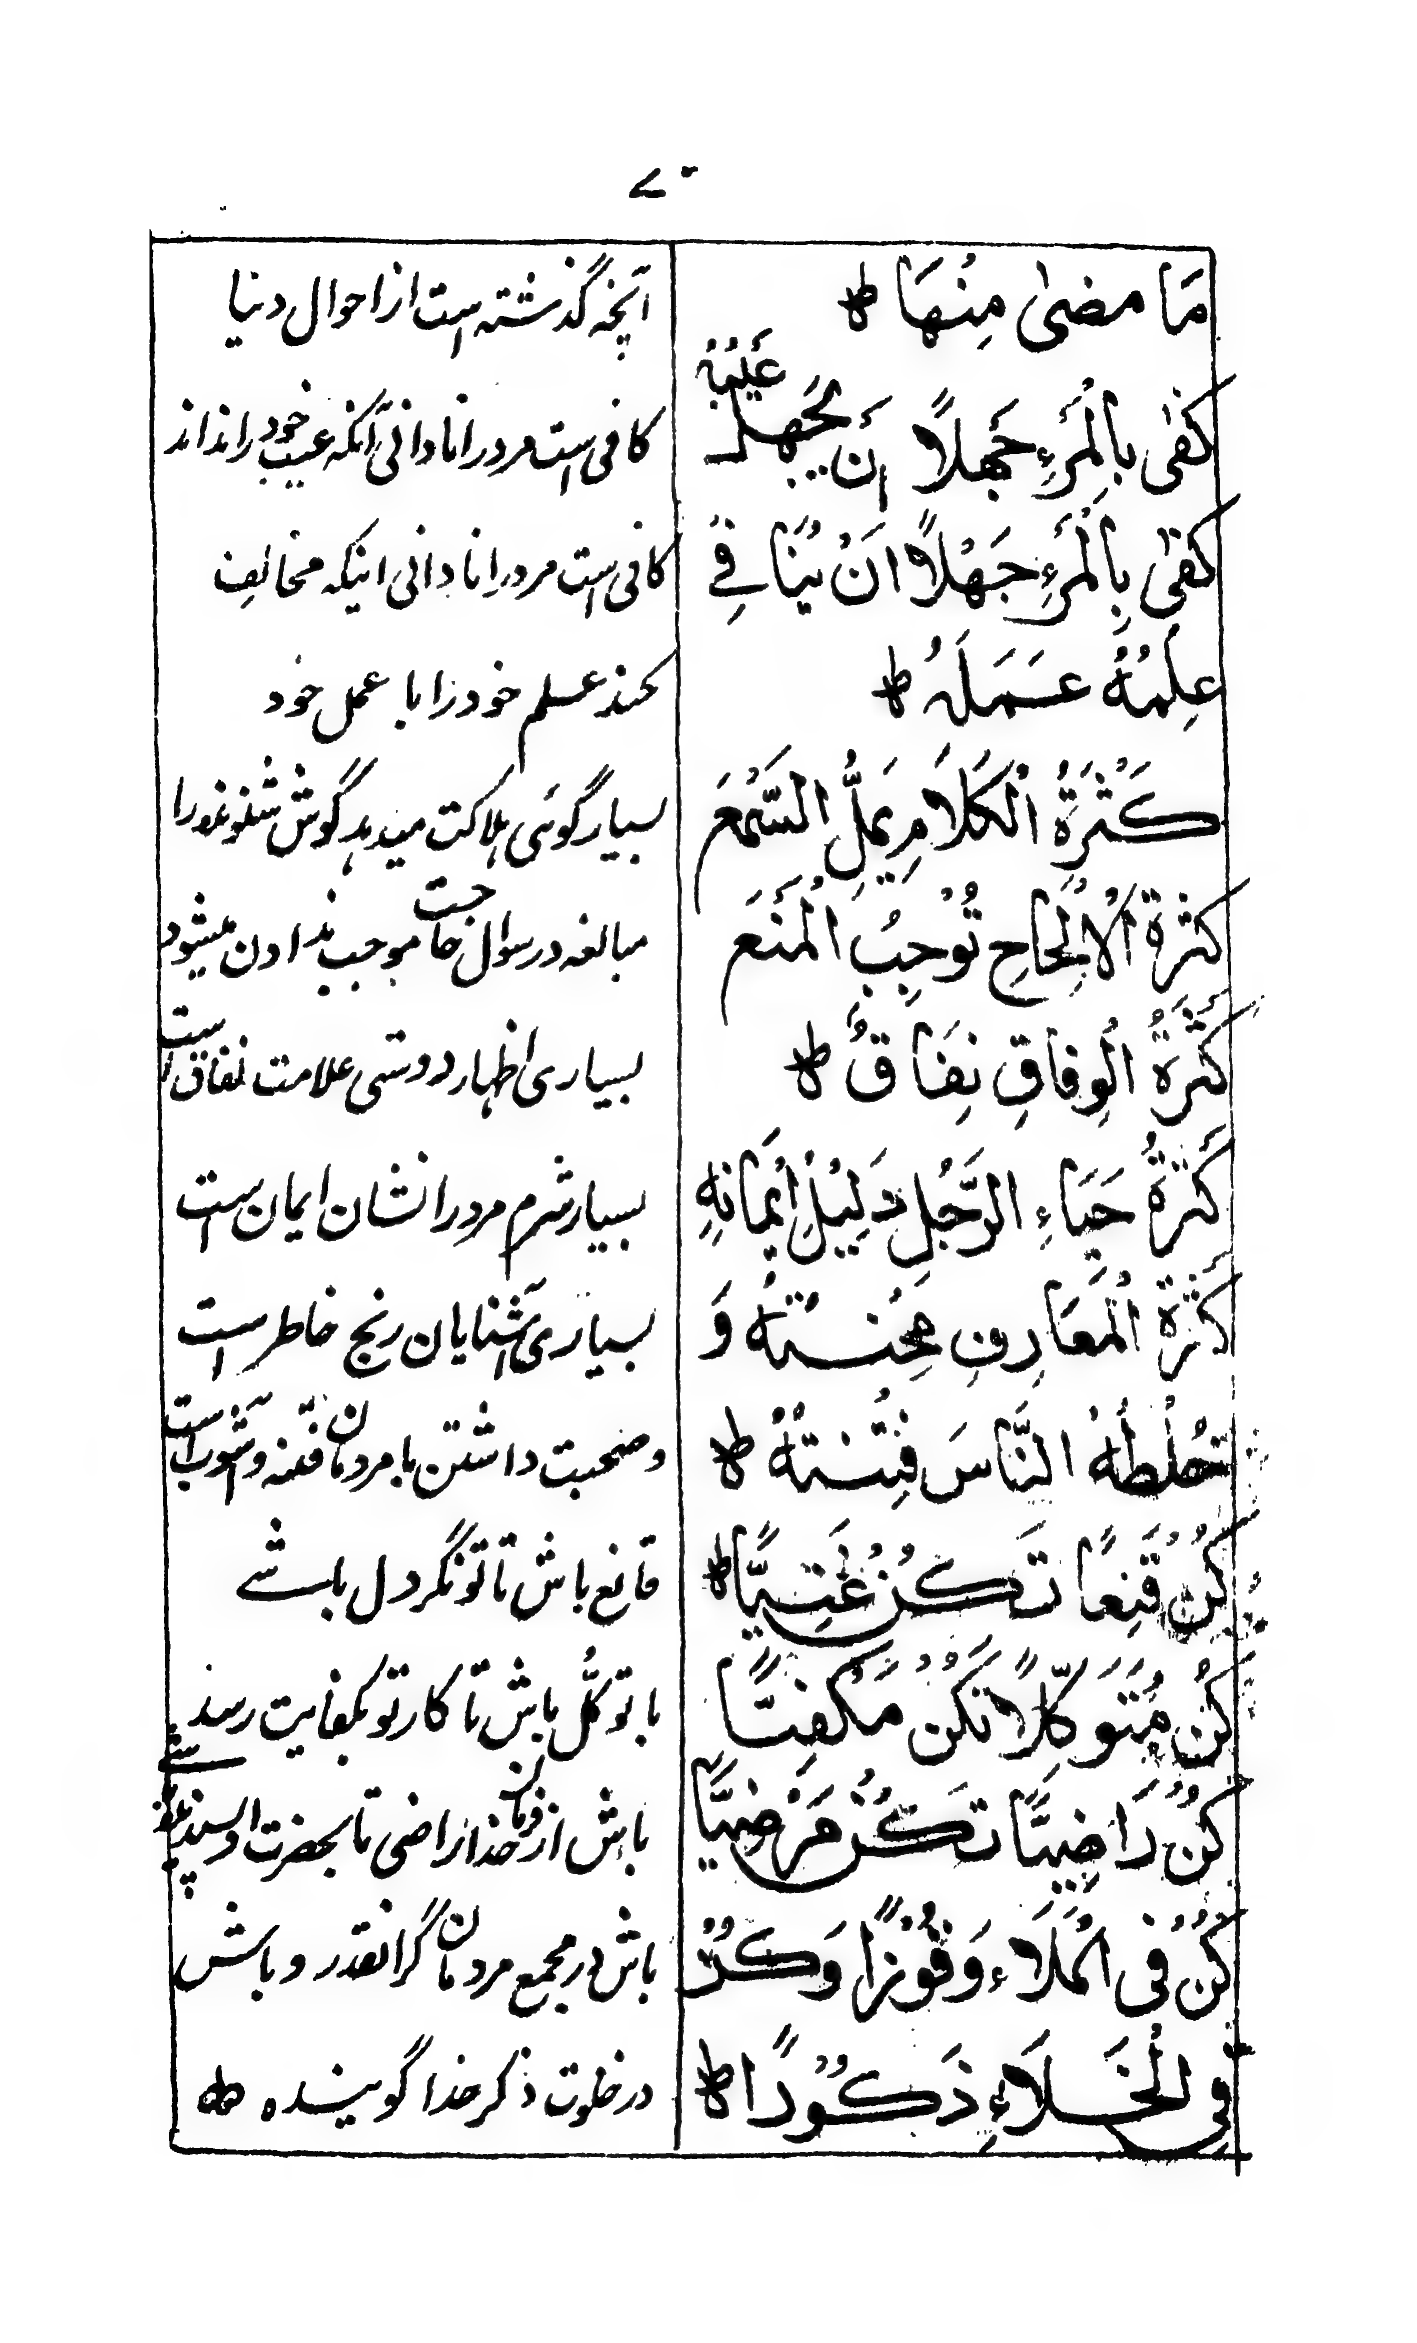 ۷۰
مَا مضىٰ مِنْهَا ط
آنچه گذشته است از احوال دنیا
كَفٰى بِالْمَرْءِ جَهلًا أَن يَجْهلَ عَيْبَهُ
کافی است مرد را نادانی آنکه عیب خود را نداند
كَفٰى بِالْمَرْءِ جَهْلًا اَنْ يُنَافِےَ
کافی است مرد را نادانی اینکه مخالف
عِلْمُهُ عَمَلَهُ ط
کند علم خود را با عمل خود
كَثْرَةُ الْكَلَامِ يَمِلُّ السَّمْعَ
بسیار گوئی هلاکت میدهد گوش شنونده را
كَثرَةُ الْاِلْحَاحِ تُوْجِبُ الْمَنْعَ
مبالغه در سوال حاجت موجب ندادن میشود
كَثْرَةُ الْوِفَاقِ نِفَاقٌ ط
بسیاری اظهار دوستی علامت نفاق است
كَثْرَةُ حَيَاءِ الرَّجُلِ دَلِيْلُ اِيْمَانِهِ
بسیار شرم مرد را نشان ایمان است
كَثْرَةُ الْمَعَارِفِ مِحْنَتُهُ وَ
بسیاری آشنایان رنج خاطر است
خُلْطَةُ النَّاسَ فِتْنَتُهُ ط
و صحبت داشتن با مردمان فتنه و آشوب است
كُنْ قَنِعًا تَكُنْ غَنِيًّا ط
قانع باش تا تونگر دل باشے
كُنْ مُتَوَكِّلًا تَكُنْ مَكْفِيًّا
با توکّل باش تا کار تو بکفایت رسد
كُنْ رَاضِيًّا تَكُنْ مَرْضِيًّا
باش از فرمان خدا راضی تا بحضرت او پسندیده شے
كُنْ فِى الْمَلَاءِ وَقُوْرًا وَكُنْ
باش در مجمع مردمان گرانقدر و باش
فِى الْخَلَاءِ ذَكُوْرًا ط
در خلوت ذکر خدا گوینده ط